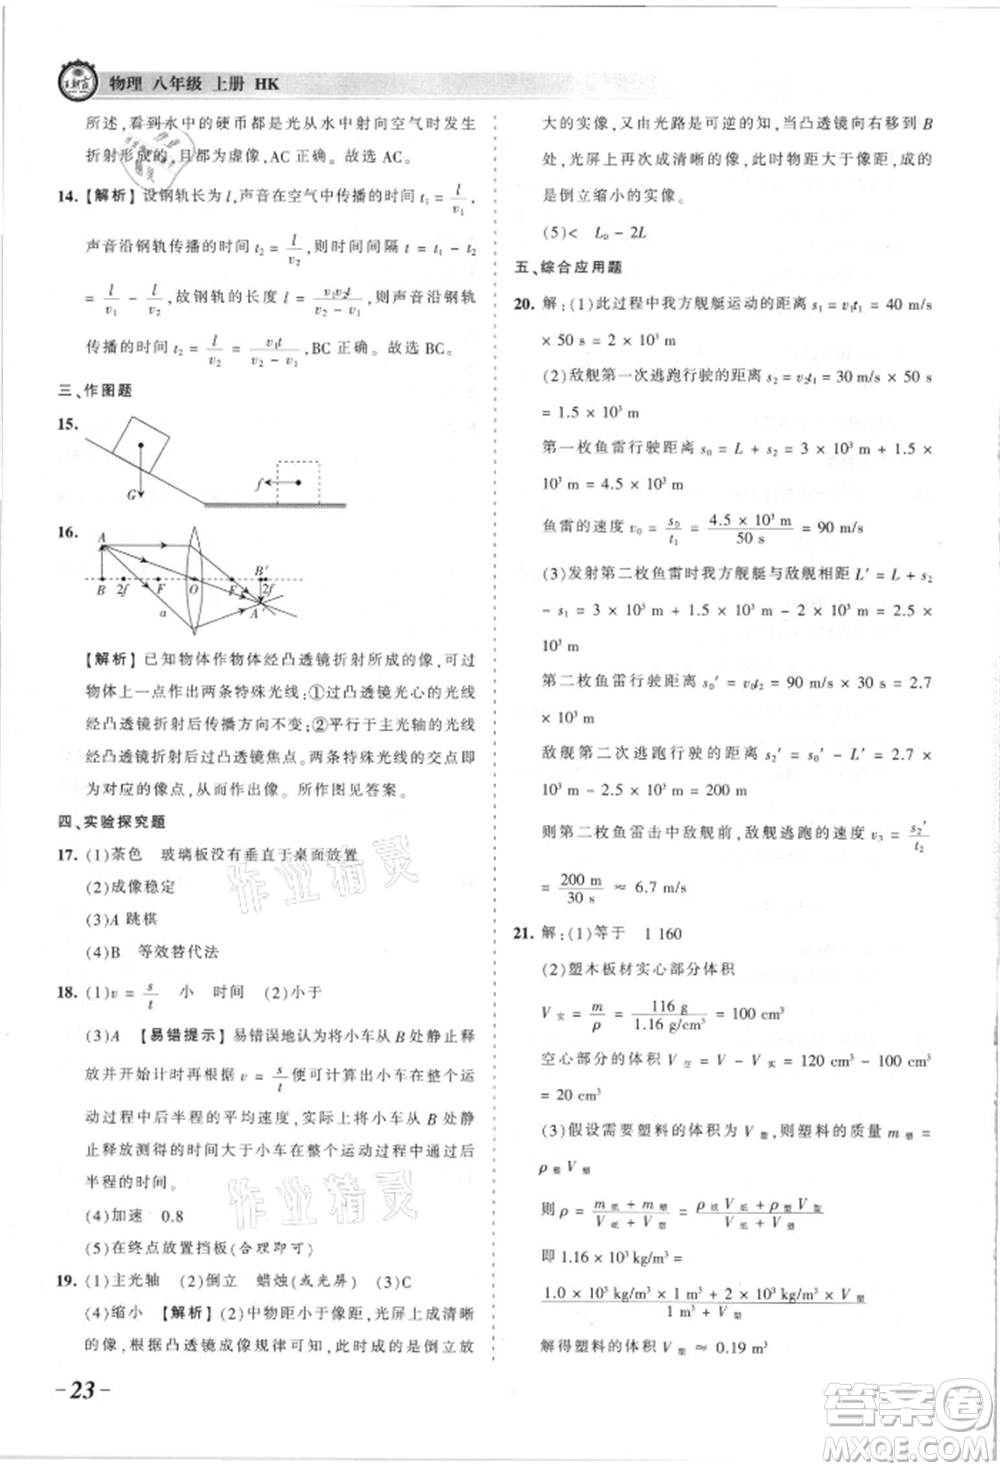 物理 八年级 上册 HK
所述，看到水中的硬币都是光从水中射向空气时发生
折射形成的，且都为虚像，AC 正确。故选 AC。
14.【解析】设钢轨长为 l，声音在空气中传播的时间 t₁ = l/v₁，
声音沿钢轨传播的时间 t₂ = l/v₂，则时间间隔 t = t₁ − t₂
= l/v₁ − l/v₂，故钢轨的长度 l = v₁v₂t/(v₂ − v₁)，则声音沿钢轨
传播的时间 t₂ = l/v₂ = v₁t/(v₂ − v₁)，BC 正确。故选 BC。
三、作图题
15.
G
f
16.
A
B 2f F O F B′ 2f
a A′
【解析】已知物体作物体经凸透镜折射所成的像，可过
物体上一点作出两条特殊光线：①过凸透镜光心的光线
经凸透镜折射后传播方向不变；②平行于主光轴的光线
经凸透镜折射后过凸透镜焦点。两条特殊光线的交点即
为对应的像点，从而作出像。所作图见答案。
四、实验探究题
17. (1)茶色 玻璃板没有垂直于桌面放置
(2)成像稳定
(3)A 跳棋
(4)B 等效替代法
18. (1)v = s/t 小 时间 (2)小于
(3)A 【易错提示】易错误地认为将小车从 B 处静止释
放并开始计时再根据 v = s/t 便可计算出小车在整个运
动过程中后半程的平均速度，实际上将小车从 B 处静
止释放测得的时间大于小车在整个运动过程中通过后
半程的时间。
(4)加速 0.8
(5)在终点放置挡板(合理即可)
19. (1)主光轴 (2)倒立 蜡烛(或光屏) (3)C
(4)缩小 【解析】(2)中物距小于像距，光屏上成清晰
的像，根据凸透镜成像规律可知，此时成的是倒立放
大的实像，又由于光路是可逆的，当凸透镜向右移到 B
处，光屏上再次成清晰的像，此时物距大于像距，成的
是倒立缩小的实像。
(5)< L₀ − 2L
五、综合应用题
20. 解：(1)此过程中我方舰艇运动的距离 s₁ = v₁t₁ = 40 m/s
× 50 s = 2 × 10³ m
(2)敌舰第一次逃跑行驶的距离 s₂ = v₂t₁ = 30 m/s × 50 s
= 1.5 × 10³ m
第一枚鱼雷行驶距离 s₀ = L + s₂ = 3 × 10³ m + 1.5 ×
10³ m = 4.5 × 10³ m
鱼雷的速度 v₀ = s₀/t₁ = 4.5 × 10³ m/50 s = 90 m/s
(3)发射第二枚鱼雷时我方舰艇与敌舰相距 L′ = L + s₂
− s₁ = 3 × 10³ m + 1.5 × 10³ m − 2 × 10³ m = 2.5 ×
10³ m
第二枚鱼雷行驶距离 s₀′ = v₀t₂ = 90 m/s × 30 s = 2.7
× 10³ m
敌舰第二次逃跑行驶的距离 s₂′ = s₀′ − L′ = 2.7 ×
10³ m − 2.5 × 10³ m = 200 m
则第二枚鱼雷击中敌舰前，敌舰逃跑的速度 v₃ = s₂′/t₂
= 200 m/30 s ≈ 6.7 m/s
21. 解：(1)等于 1 160
(2)塑木板材实心部分体积
V实 = m/ρ = 116 g/1.16 g/cm³ = 100 cm³
空心部分的体积 V空 = V − V实 = 120 cm³ − 100 cm³
= 20 cm³
(3)假设需要塑料的体积为 V塑，则塑料的质量 m塑 =
ρ塑V塑
则 ρ = (m纸 + m塑)/(V纸 + V塑) = (ρ纸V纸 + ρ塑V塑)/(V纸 + V塑)
即 1.16 × 10³ kg/m³ =
(1.0 × 10³ kg/m³ × 1 m³ + 2 × 10³ kg/m³ × V塑)/(1 m³ + V塑)
解得塑料的体积 V塑 ≈ 0.19 m³
作业精灵
作业精灵
－23－
答案圈
MXQE.COM